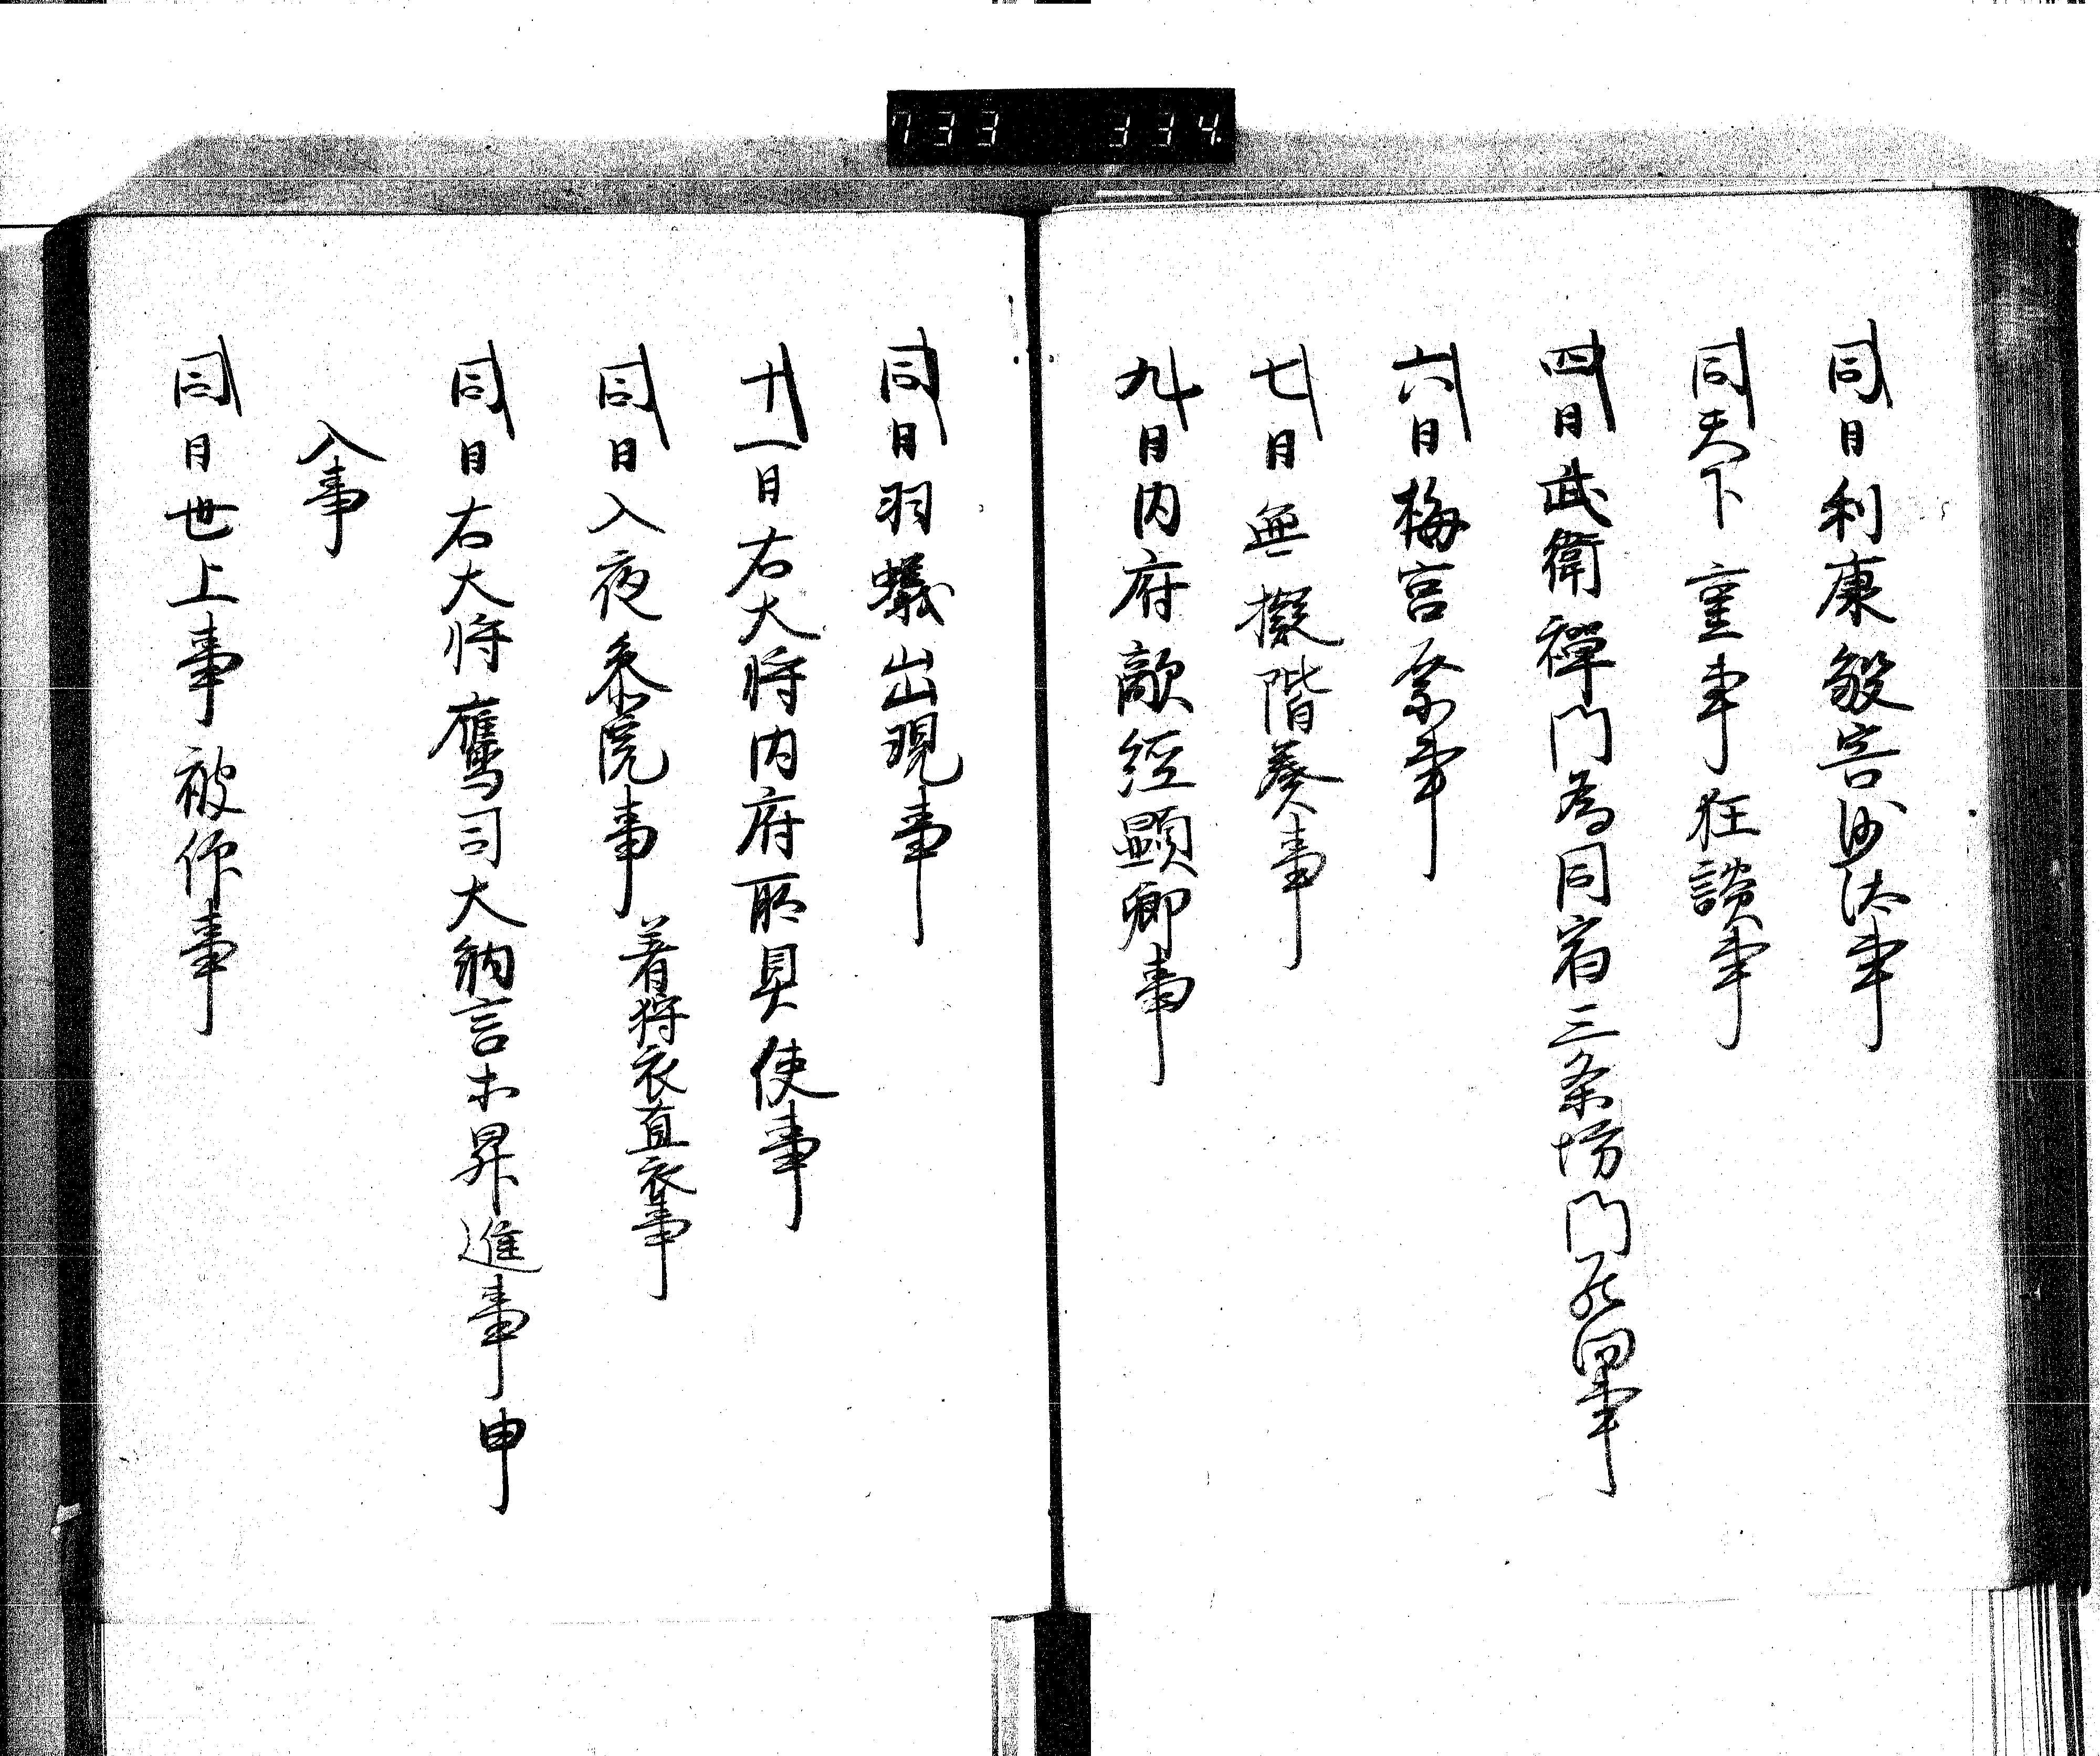 733 334
同日利康殺害沙汰事
同天下重事狂談事
四日武衛禅門為同宿三条坊門死罪事
六日梅宮祭事
七日無擬階奏事
九日内府敵経顕卿事
同日羽蟻出現事
十一日右大将内府所具使事
同日入夜参院事 着狩衣直衣事
同日右大将鷹司大納言木昇進事申
入事
同日世上事被作事